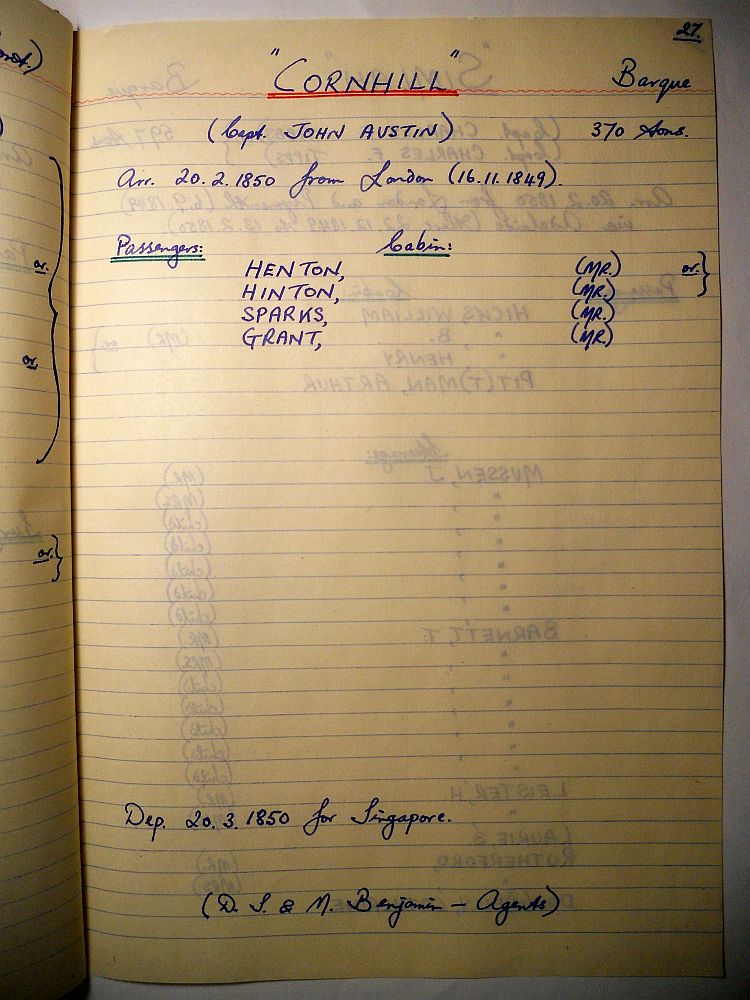 27.
"CORNHILL" Barque
(Capt. JOHN AUSTIN) 370 tons.
Arr. 20.2.1850 from London (16.11.1849).
Passengers: Cabin:
HENTON, (MR.) or }
HINTON, (MR.)
SPARKS, (MR.)
GRANT, (MR.)
or
or
or }
Dep. 20.3.1850 for Singapore.
(D. S. & M. Benjamin — Agents)